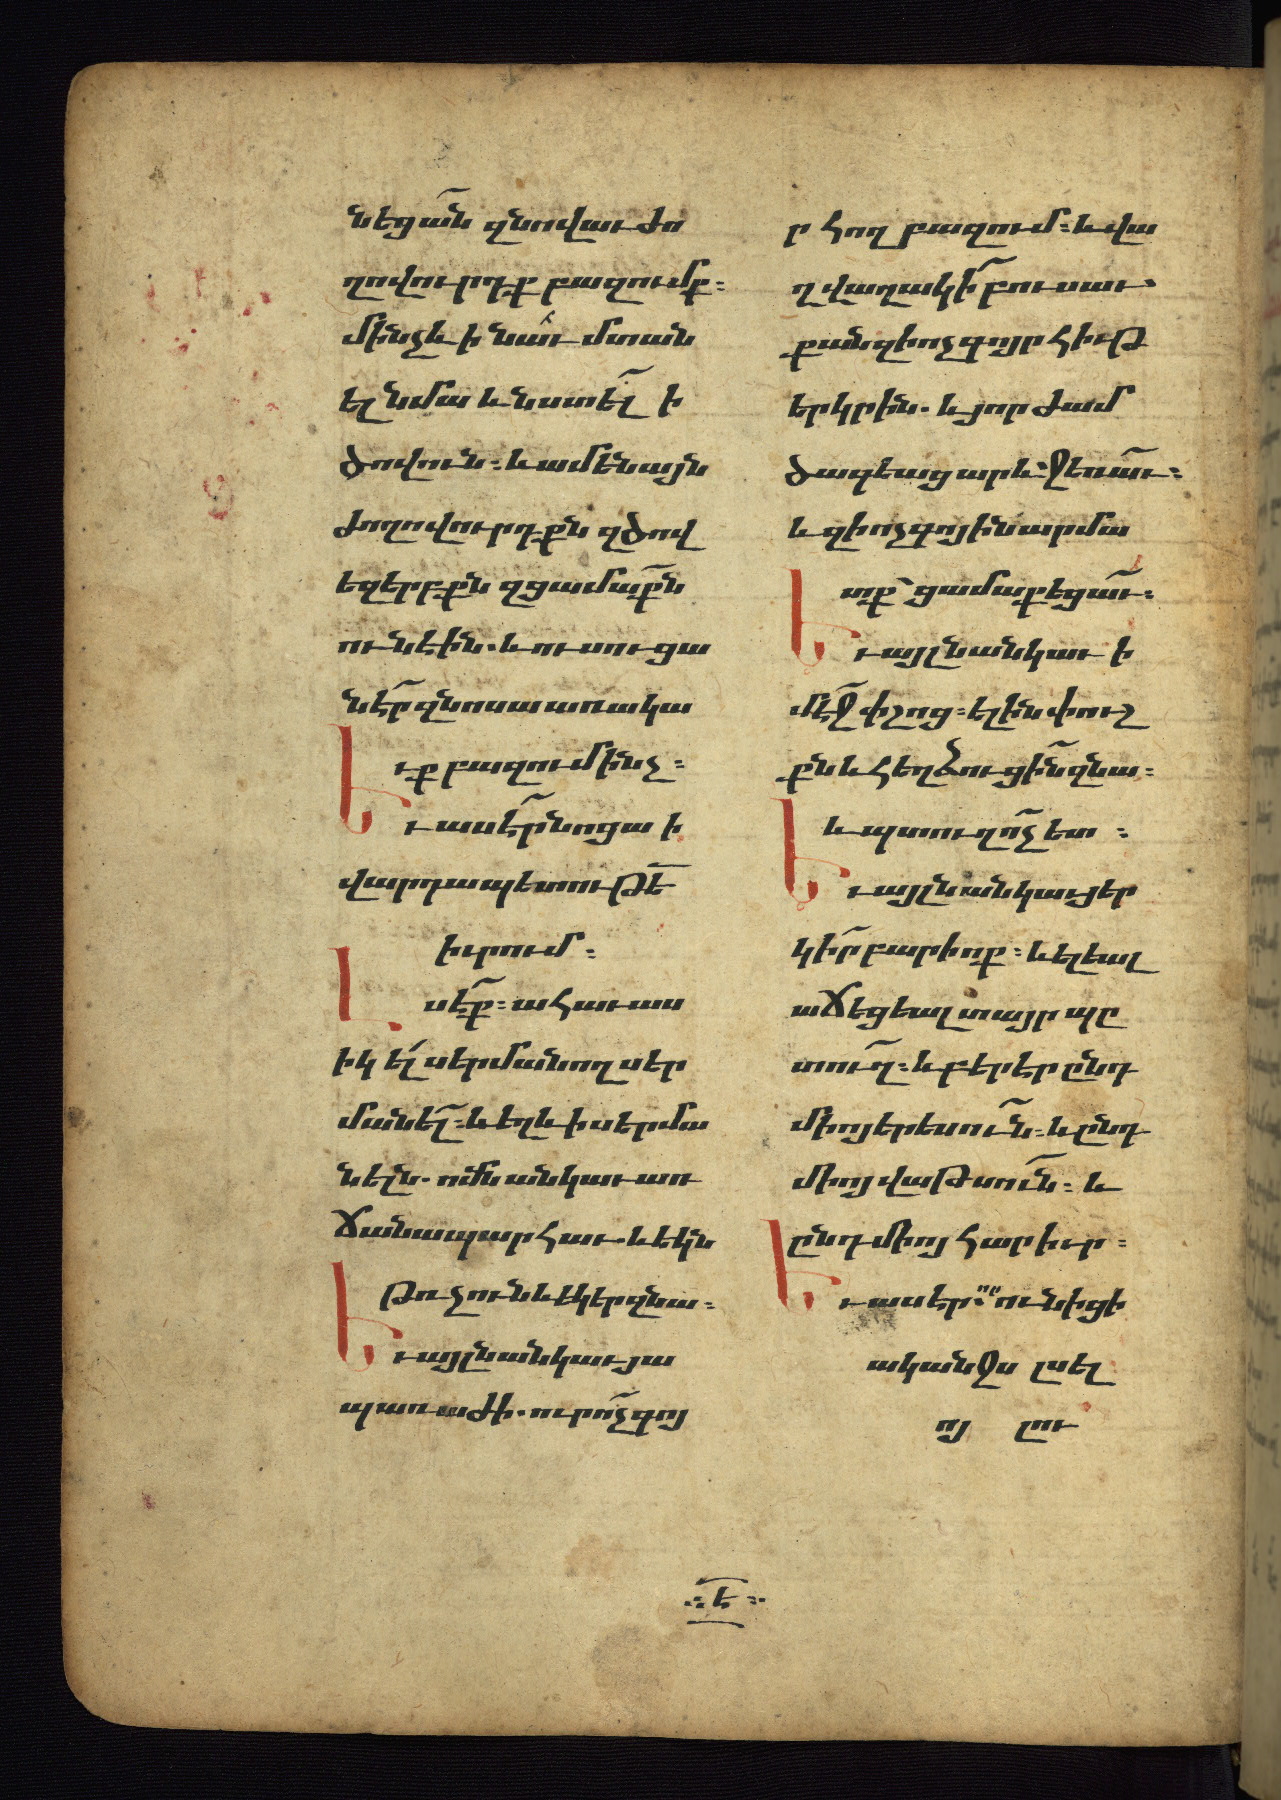 նեցա՟ն զնովաւ ժո
ղովուրդք բազումք։
մինչև ի նաւ մտան
ել նմա և նստել ի
ծովուն։ և ամենայն
ժողովուրդքն զծով
եզերբքն զցամաքն
ունէին. և ուսուցա
նէր զնոսա առակա
ւք բազում ինչ։
Եւ ասէր նոցա ի
վարդապետութե՟
իւրում։
Լսէք։ ահաւաս
իկ ել սերմանող սեր
մանել։ և եղև ի սերմա
նելն. ոմն անկաւ առ
ճանապարհաւ. և եկն
թռչուն և եկեր զնա։
Եւ այլն անկաւ յա
պառաժի. ուր ոչ գոյ
ր հող բազում։ և վա
ղվաղակի բուսաւ
քանզի ոչ գոյր հիւթ
երկրին. և յորժամ
ծագեաց արև. ջեռաւ։
և զի ոչ գոյին արմա
տք՝ ցամաքեցաւ։
Եւ այլն անկաւ ի
մէջ փշոց։ ելին փուշ
քն և հեղձուցին զնա։
և պտուղ ոչ ետ։
Եւ այլն անկաւ յեր
կիր բարիոք։ և ելեալ
աճեցեալ տայր պը
տուղ։ և բերէր ընդ
միոյ երեսուն։ և ընդ
միոյ վաթսուն։ և
ընդ միոյ հարիւր։
Եւ ասէր. ո՞ ունիցի
ականջս լսել
ոյ լու
ե